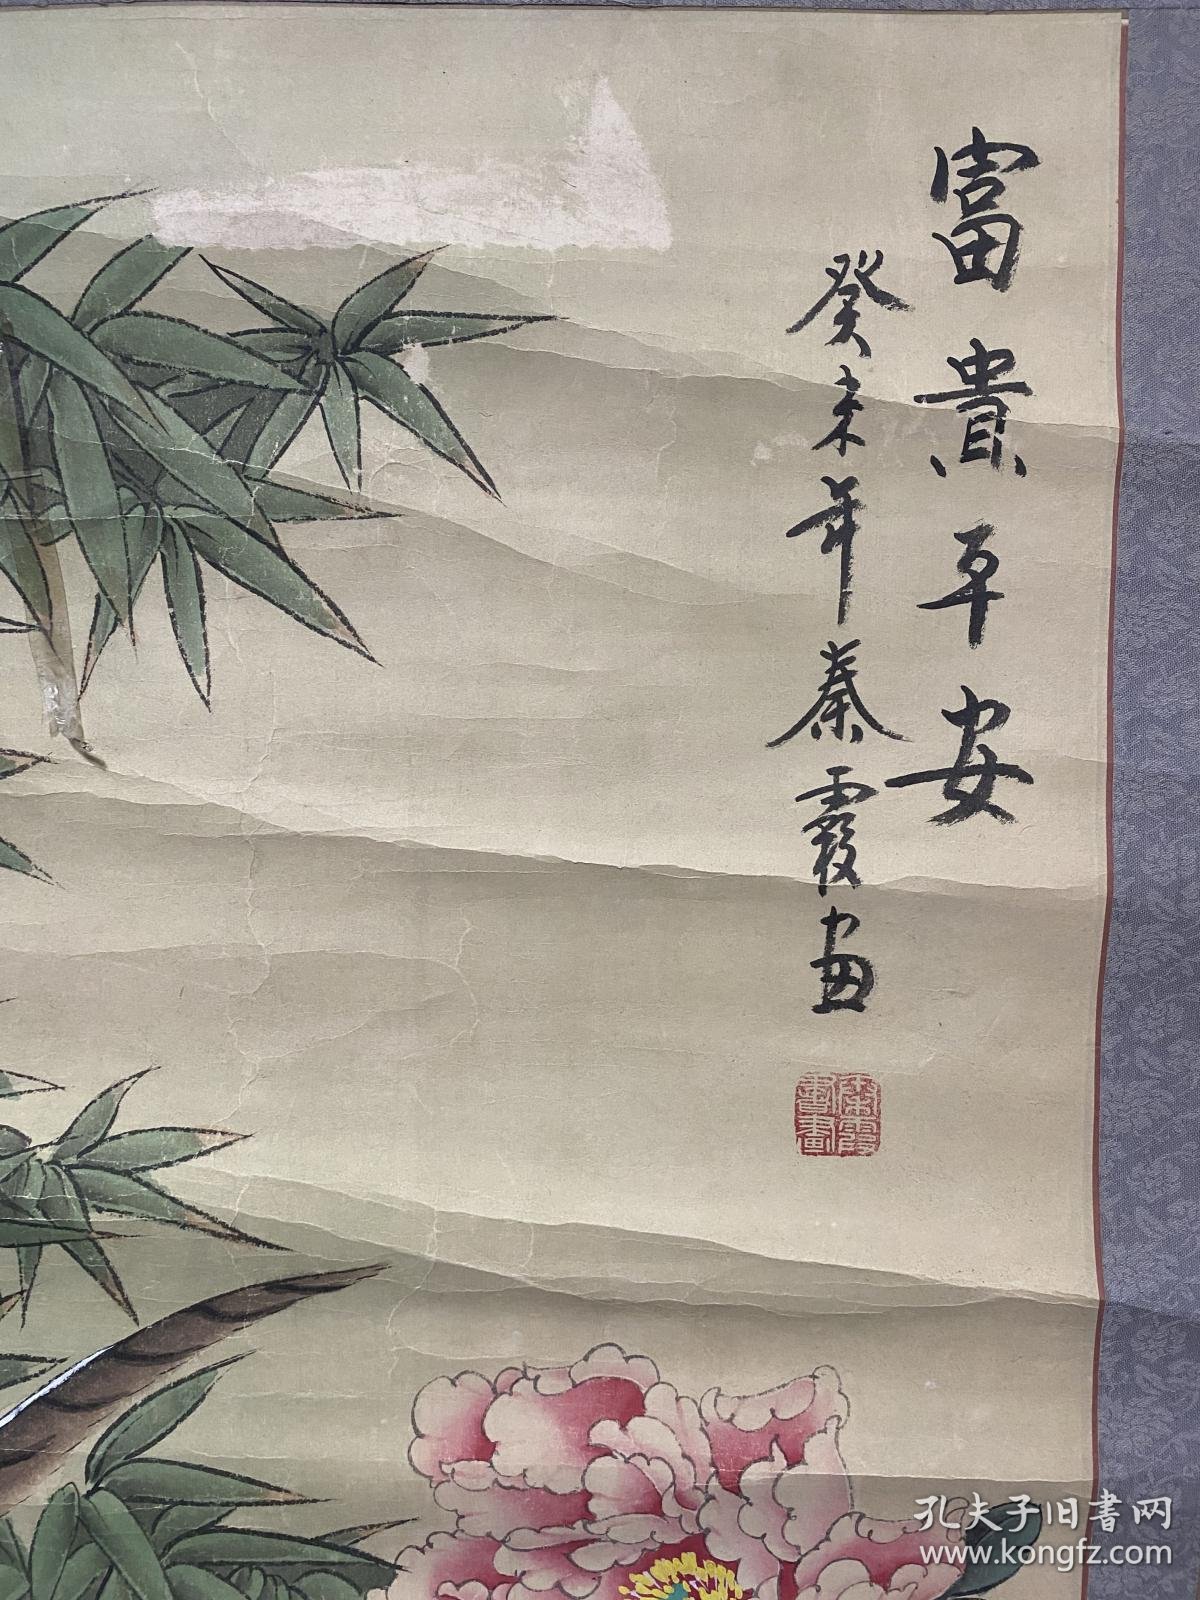 富貴平安
癸未年秦霞画
秦霞書畫
孔夫子旧書网
www.kongfz.com